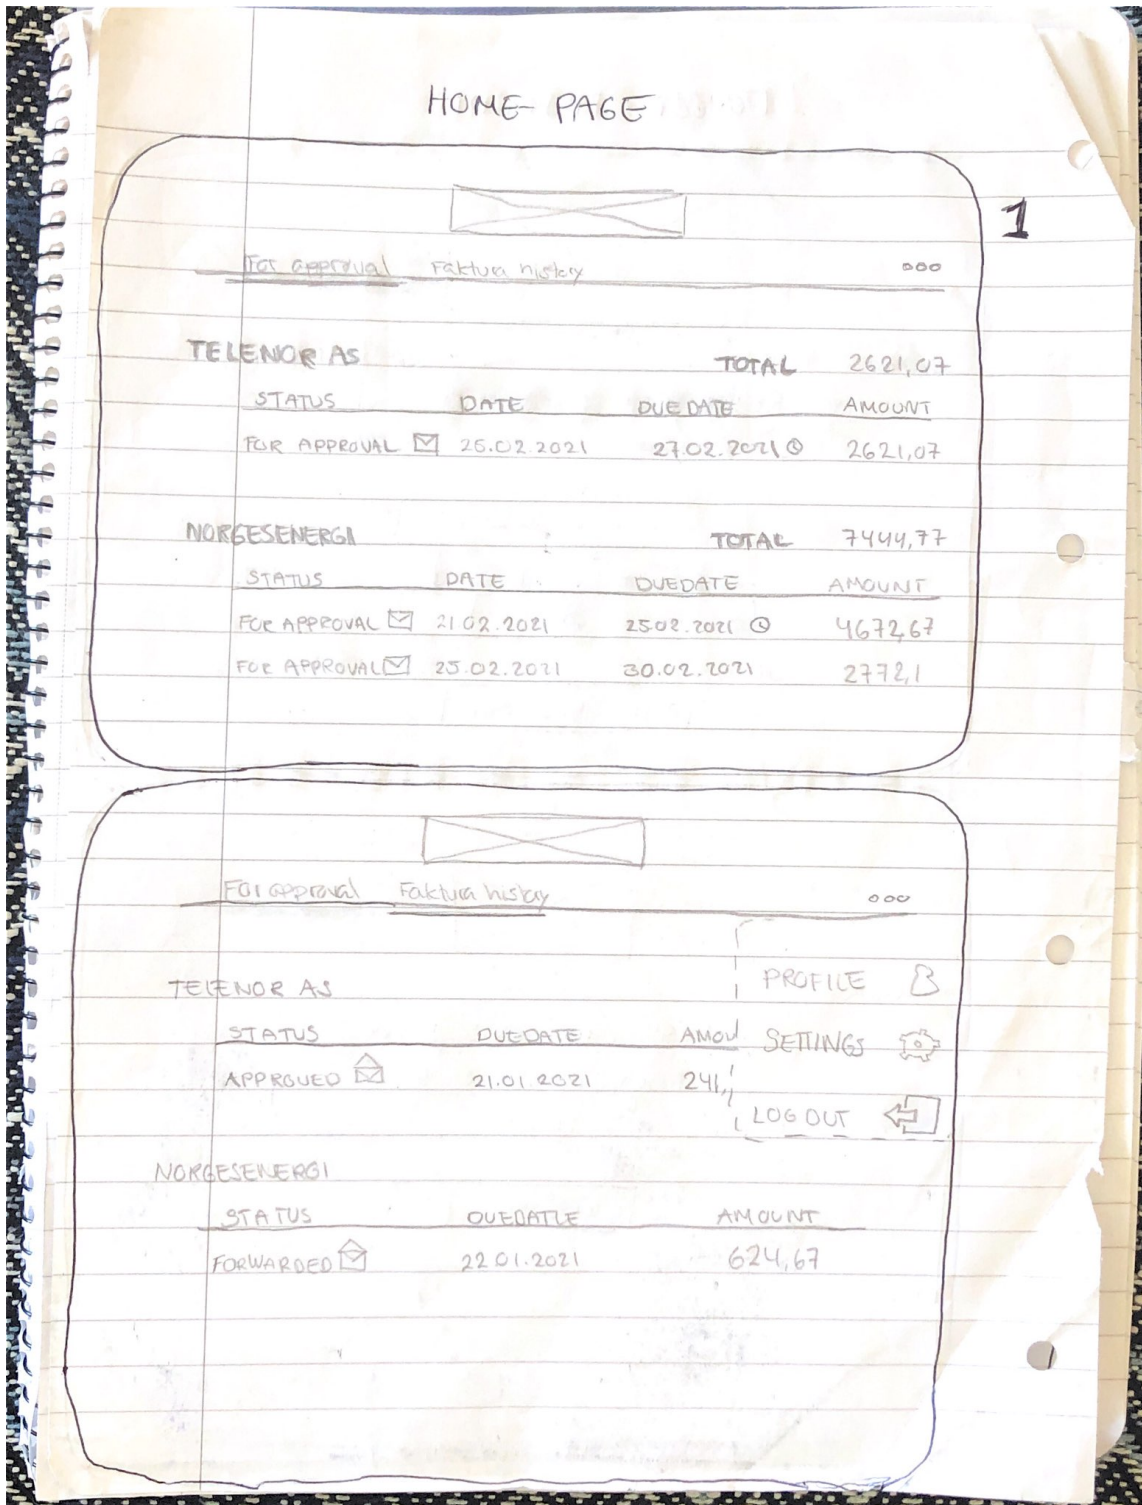 HOME PAGE
1
For approval Faktura history
TELENOR AS TOTAL 2621,07
STATUS DATE DUE DATE AMOUNT
FOR APPROVAL 25.02.2021 27.02.2021 2621,07
NORGESENERGI TOTAL 7444,77
STATUS DATE DUEDATE AMOUNT
FOR APPROVAL 21.02.2021 25.02.2021 4672,67
FOR APPROVAL 25.02.2021 30.02.2021 2772,1
For approval Faktura history
PROFILE
TELENOR AS
STATUS DUEDATE AMOU SETTINGS
APPROVED 21.01.2021 241,
LOG OUT
NORGESENERGI
STATUS DUEDATE AMOUNT
FORWARDED 22.01.2021 624,67